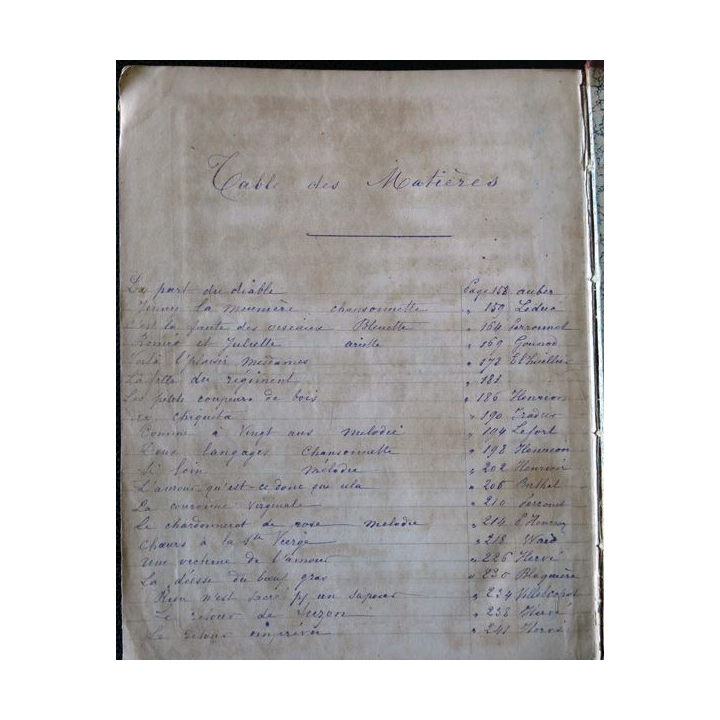 Table des Matières
La part du diable Page 158 auber
la meunière chansonnette " 159 Leduc
C'est la faute des oiseaux Bleuette " 164
Roméo et Juliette ariette " 169 Gounod
Voilà l'plaisir Mesdames " 178
La fille du régiment " 181
Les petits coupeurs de bois " 186 Henrion
La chiquita " 190
Comme à Vingt ans Mélodie " 194 Lefort
Deux langages Chansonnette " 198 Henrion
Si loin Mélodie " 202 Henrion
L'amour qu'est-ce donc que cela " 206 Barthel
La couronne virginale " 210
Le chardonneret de rose Mélodie " 214
Chœurs à la Ste Vierge " 218 Ward
Une victime de l'amour " 226 Hervé
La déesse du bœuf gras " 230 Blaquière
Rien n'est sacré pr un sapeur " 234 Villebichot
Le retour de Suzon " 238 Hervé
Le retour imprévu " 241 Hervé